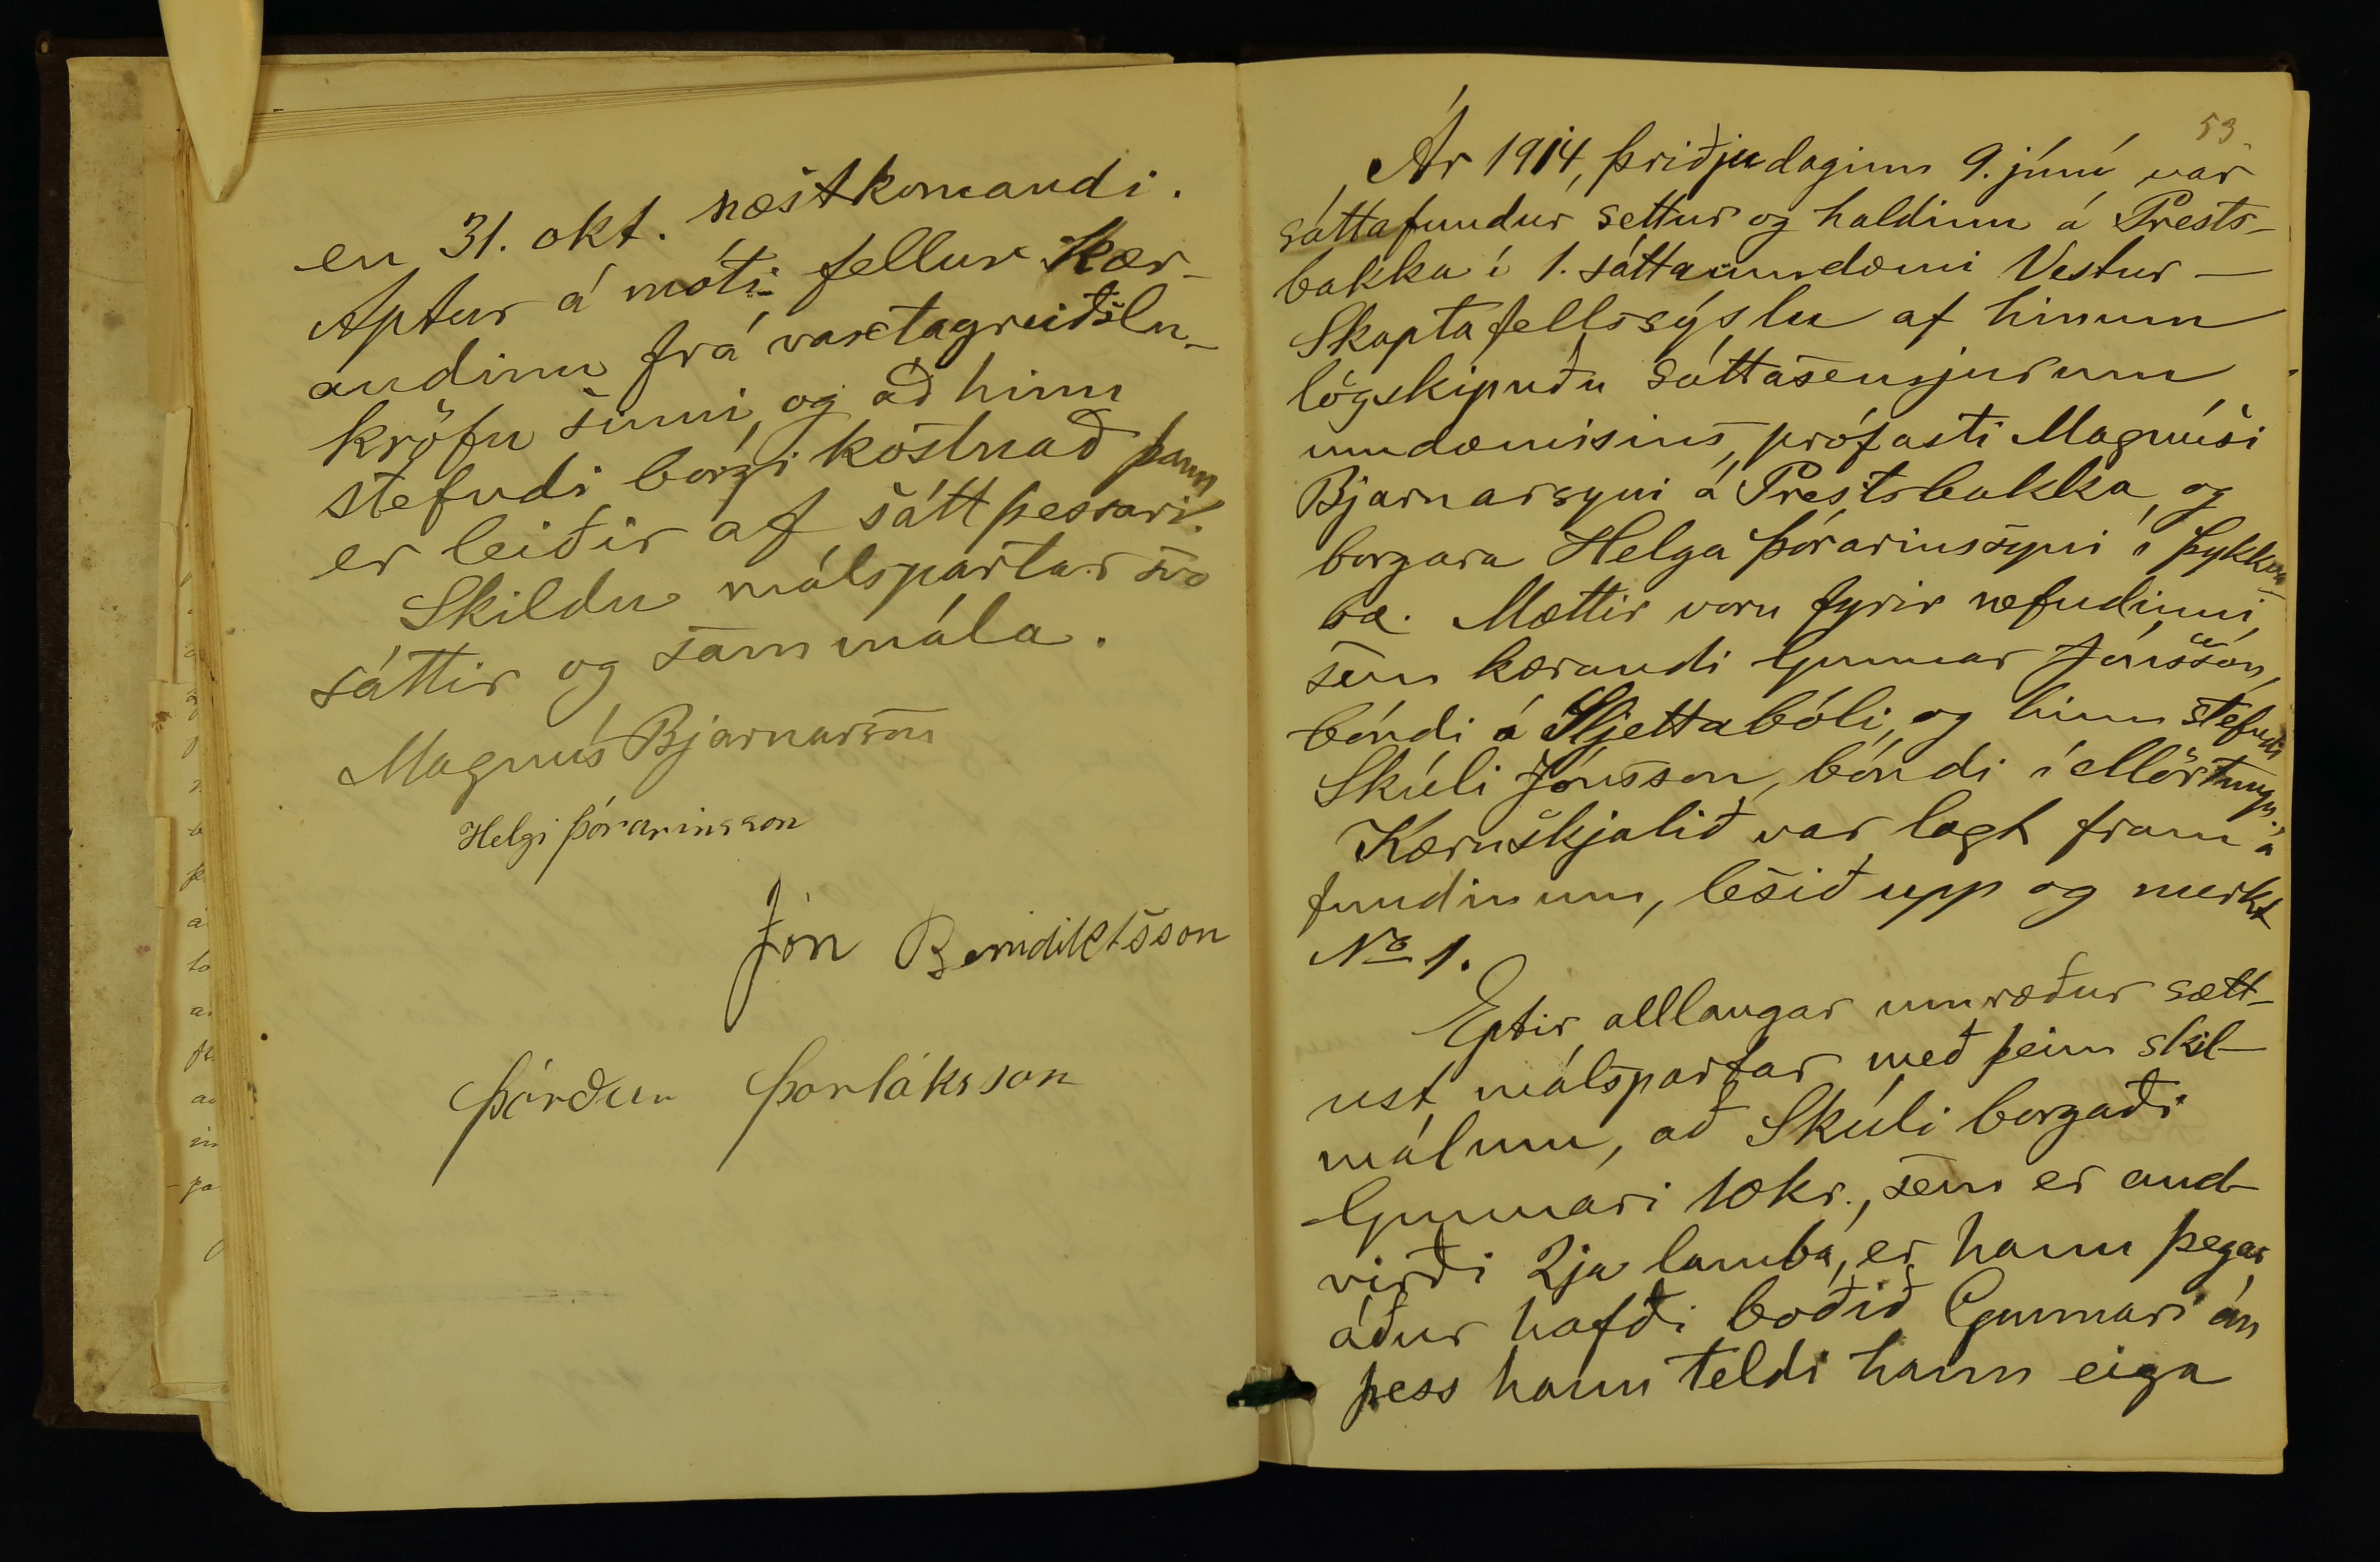 en 31. okt. næstkomandi.
Aptur á móti fellur kær-
andinn frá vaxtagreiðslu-
kröfu sinni, og að hinn
stefndi borgi kostnað þann
er leiðir af sátt þessari.
Skildu málspartar svo
sáttir og sammála.
Magnús Bjarnarson
Helgi Þórarinsson
Jón Benidiktsson
Þórður Þorláksson
53
Ár 1914, þriðjudaginn 9. júní var
sáttafundur settur og haldinn á Prests-
bakka í 1. sáttaumdæmi Vestur-
Skaptafellssýslu af hinum
lögskipuðu sáttasemjurum
umdæmisins, prófasti Magnúsi
Bjarnarsyni á Prestsbakka, og
borgara Helga Þórarinssyni í Þykkva-
bæ. Mættir voru fyrir nefndinni,
sem kærandi Gunnar Jónsson,
bóndi á Sljettabóli, og hinn stefndi
Skúli Jónsson, bóndi í Mörtungu.
Kæruskjalið var lagt fram á
fundinum, lesið upp og merkt
No 1.
Eptir alllangar umræður sætt-
ust málspartar með þeim skil-
málum, að Skúli borgaði
Gunnari 10 kr., sem er and-
virði 2ja lamba, er hann þegar
áður hafði boðið Gunnari án
þess hann teldi hann eiga